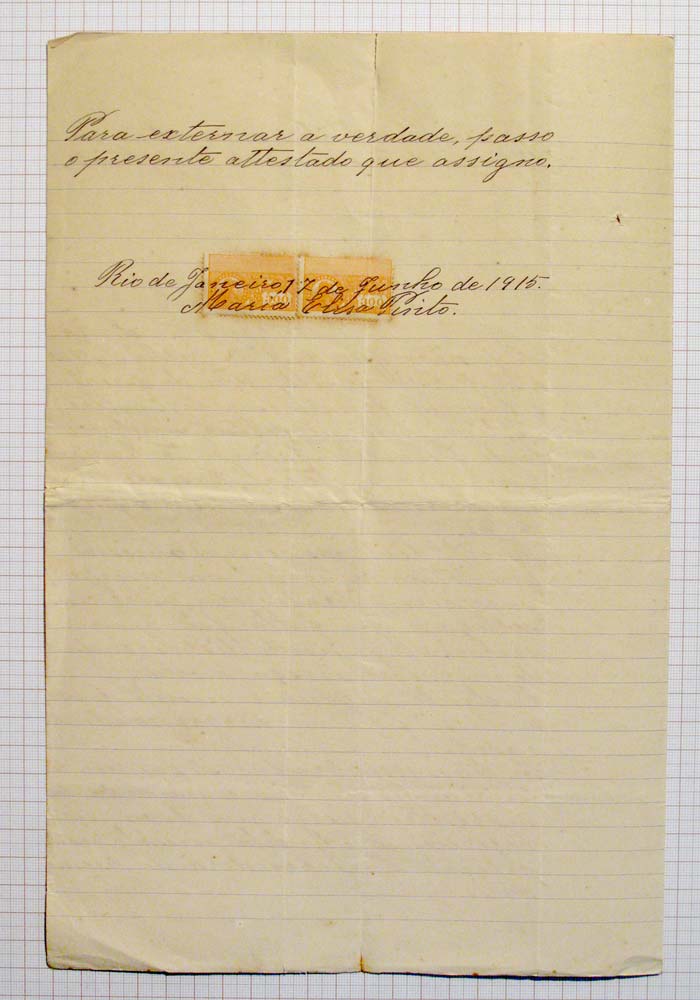 Para externar a verdade, passo
o presente attestado que assigno.
Rio de Janeiro, 17 de Junho de 1915.
Maria Elisa Pinto.